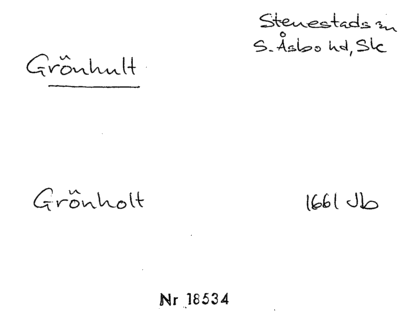 Stenestads sn
S. Åsbo hd, Sk
Grönhult
Grönholt 1661 Jb
Nr 18534